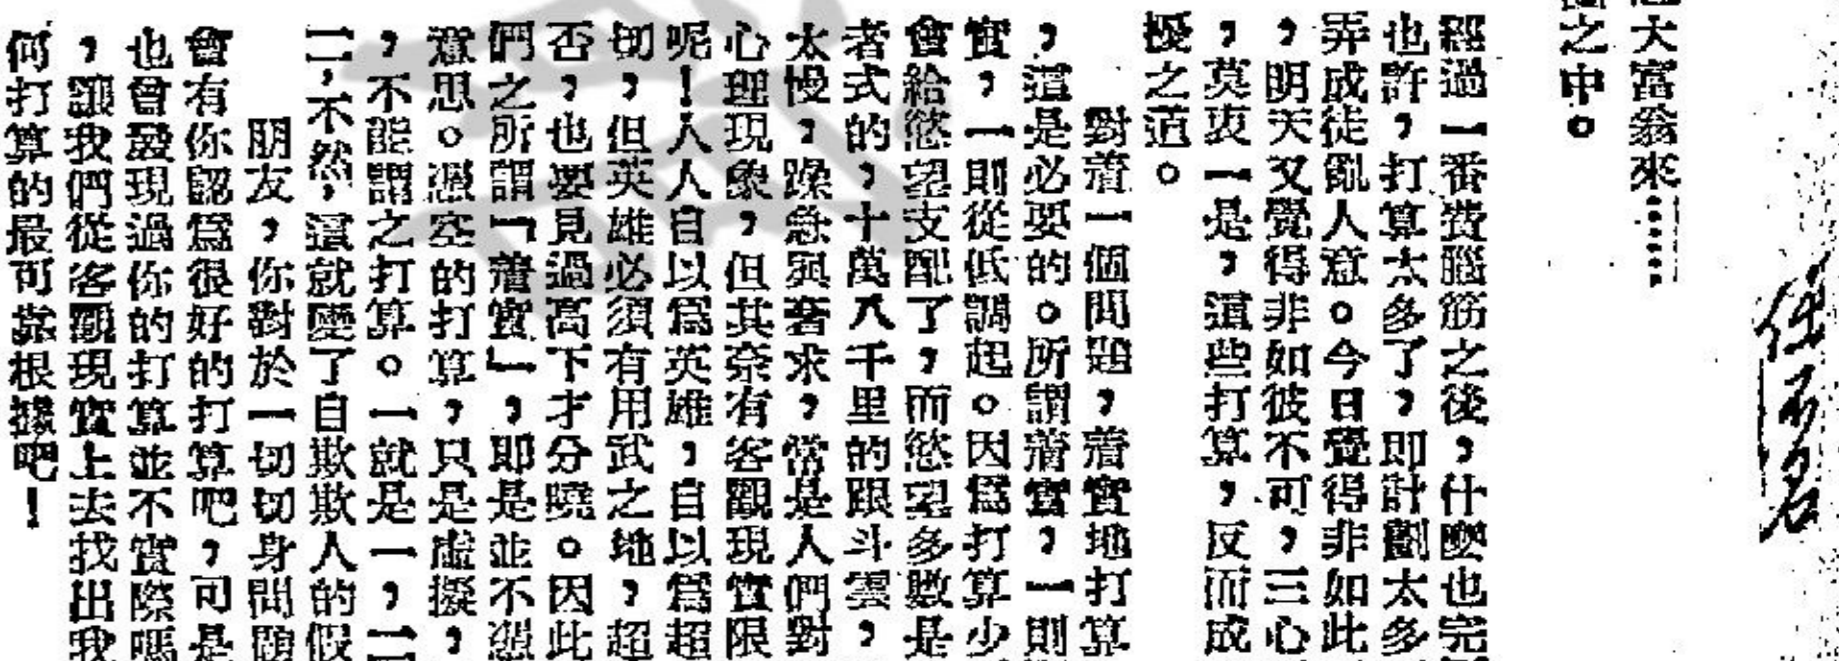 大富翁來……
之中。
經過一番費腦筋之後，什麼也完
也許，打算太多了，即計劃太多
弄成徒亂人意。今日覺得非如此
，明天又覺得非如彼不可，三心
，莫衷一是，這些打算，反而成
擾之道。
對着一個問題，着實地打算
，這是必要的。所謂着實，一則
實，一則從低調起。因爲打算少
會給慾望支配了，而慾望多數是
者式的，十萬八千里的跟斗雲，
太慢，躁急與奢求，常是人們對
心理現象，但其奈有客觀現實限
呢！人人自以爲英雄，自以爲超
切，但英雄必須有用武之地，超
否，也要見過高下才分曉。因此
們之所謂「着實」，即是並不憑
意思。憑空的打算，只是虛擬，
，不能謂之打算。一就是一，二
二，不然，這就變了自欺欺人的假
朋友，你對於一切切身問題
會有你認爲很好的打算吧，可是
也會發現過你的打算並不實際嗎
，讓我們從客觀現實上去找出我
何打算的最可靠根據吧！
任不名